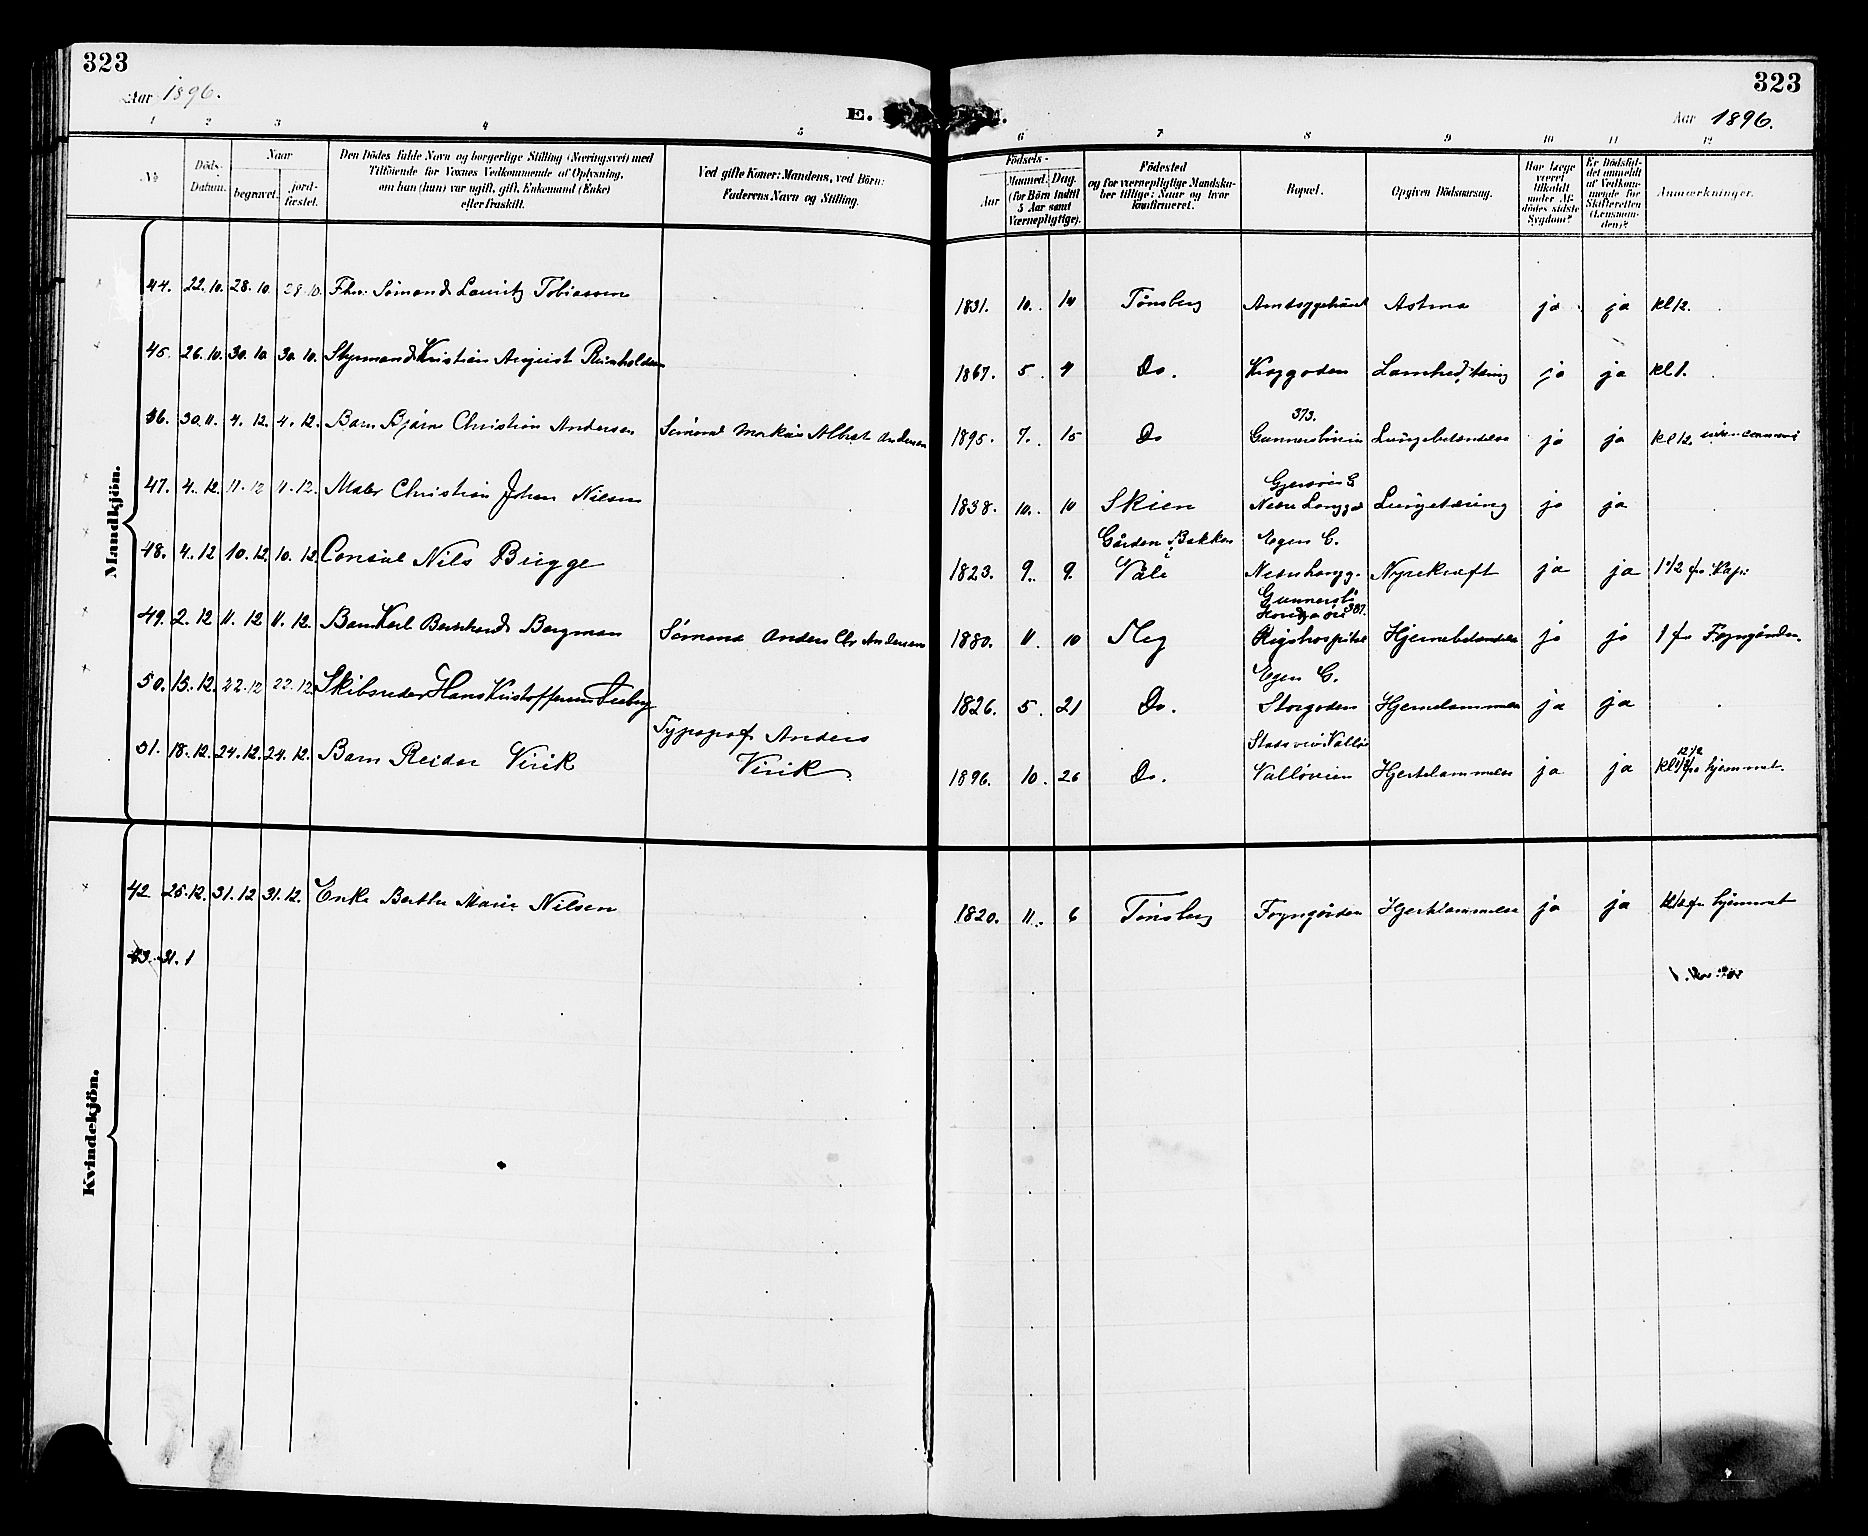 323
323
Aar 1896.
E.
Aar 1896.
1 2 3 4 5 6 7 8 9 10 11 12
No
Döds-Datum.
Naar
begravet.
jord-fæstet.
Den Dödes fulde Navn og borgerlige Stilling (Næringsvei) med
Tilföiende for Voxnes Vedkommende af Oplysning,
om han (hun) var ugift, gift, Enkemand (Enke)
eller fraskilt.
Ved gifte Koner: Mandens, ved Börn:
Faderens Navn og Stilling.
Födsels-
Aar
Maaned. Dag.
(for Börn indtil
5 Aar samt
Værnepligtige).
Födested
og for værnepligtige Mandska-
ber tillige: Naar og hvor
konfirmeret.
Bopæl.
Opgiven Dödsaarsag.
Har Læge
været
tilkaldt
under Af-
dödes sidste
Sygdom?
Er Dödsfal-
det anmeldt
af Vedkom-
mende for
Skifteretten
(Lensman-
den)?
Anmærkninger.
Mandkjön.
44. 22. 10. 28. 10 28. 10. Fhv. Sömand Lauritz Tobiassen 1831. 10. 14 Tønsberg Amtssygehuset Astma ja ja kl 12.
45. 26. 10. 30. 10 30. 10. Styrmand Kristian August Reinholdsen 1867. 5. 4 Do. Lamhed, tæring ja ja kl 1.
46. 30. 11. 4. 12. 4. 12. Barn Bjarne Christian Andersen Sömand Markus Albert Andersen 1895. 7. 15 Do 373. Lungebetændelse ja ja kl 12.
47. 4. 12. 11. 12 11. 12. Maler Christian Johan Nilsen 1838. 10. 10 Skien Nedre Langg. Lungetæring ja ja
48. 4. 12 10. 12 10. 12. Consul Nils Brügge 1823. 9. 9. Gården Bakken i Våle Egen G. Nedre Langg. Nyrekræft ja ja 1 1/2 fr. Kap.
49. 2. 12 11. 12 11. 12. Barn Karl Bernhard Bergman Sömand Anders Chr Andersen 1880. 11. 10 387. Rigshospital Hjernebetændelse ja ja 1 fra Foyngården.
50. 15. 12. 22. 12 22. 12. Skibsreder Hans Kristoffersen 1826. 5. 21 Do. Egen G. Storgaden Hjernelammelse ja ja
51. 18. 12. 24. 12. 24. 12. Barn Reidar Virik Typograf Anders Virik 1896. 10. 26 Do. Valløveien Hjertelammelse ja ja 12 1/2 fra hjemmet.
Kvindekjön.
42 25. 12. 31. 12 31. 12. Enke Berthe Marie Nilsen 1820. 11. 6 Tønsberg Foyngården Hjertelammelse ja ja fra hjemmet
43. 31. 1